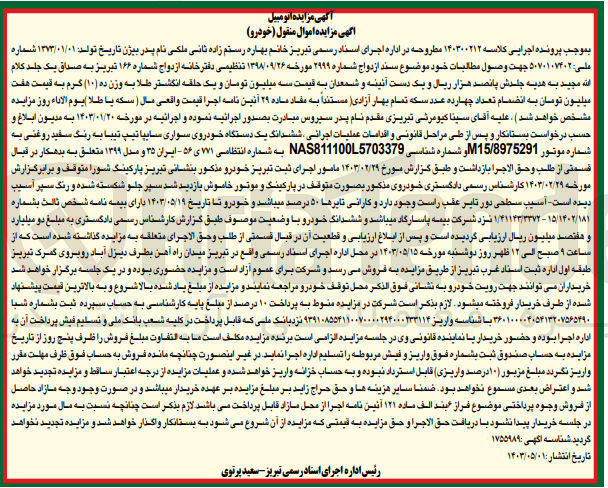 آگهی مزایده اتومبیل
آگهی مزایده اموال منقول (خودرو)
بموجب پرونده اجرایی کلاسه ۱۴۰۳۰۰۲۱۲ مطروحه در اداره اجرای اسناد رسمی تبریز خانم بهاره رستم زاده ثانی ملکی نام پدر بیژن تاریخ تولد: ۱۳۷۳/۰۱/۰۱ شماره
ملی: ۵۰۷۰۱۰۷۴۰۲ جهت وصول مطالبات خود موضوع سند ازدواج شماره ۲۹۹۹ مورخه ۱۳۹۸/۰۹/۲۶ تنظیمی دفترخانه ازدواج شماره ۱۶۶ تبریز به صداق یک جلد کلام
الله مجید به هدیه جلدش پانصد هزار ریال و یک دست آئینه و شمعدان به قیمت سه میلیون تومان و یک حلقه انگشتر طلا به وزن ده (۱۰) گرم به قیمت هفت
میلیون تومان به انضمام تعداد چهارده عدد سکه تمام بهار آزادی( مستنداً به مفاد ماده ۲۹ آئین نامه اجرا قیمت واقعی مال ( سکه یا طلا )یوم الاداء روز مزایده
مشخص خواهد شد ) ، علیه آقای سینا کیومرثی تبریزی مقدم نام پدر سیروس مبادرت بصدور اجرائیه نموده و اجرائیه در مورخه ۱۴۰۳/۰۱/۲۰ به مدیون ابلاغ و
حسب درخواست بستانکار و پس از طی مراحل قانونی و اقدامات عملیات اجرائی ، ششدانگ یک دستگاه خودروی سواری سایپا تیپ تیبا به رنگ سفید روغنی به
شماره موتور M15/8975291و شماره شناسی NAS811100L5703379 به شماره انتظامی ۷۷۱ ی ۵۶ - ایران ۳۵ و مدل ۱۳۹۹ متعلق به بدهکار در قبال
قسمتی از طلب وحق الاجرا بازداشت و طبق گزارش مورخ ۱۴۰۳/۰۲/۲۹ مامور اجرای ثبت تبریز خودرو مذکور بنشانی تبریز پارکینگ شورا متوقف و برابرگزارش
مورخه ۱۴۰۳/۰۲/۲۹ کارشناس رسمی دادگستری خودروی مذکور بصورت متوقف در پارکینگ و موتور خاموش بازدید شد سپر جلو شکسته شده و رنگ سپر آسیب
دیده است- آسیب سطحی دور تایر عقب راست وجود دارد و کارائی تایرها ۵۰ درصد میباشد و خودرو تا تاریخ ۱۴۰۳/۰۵/۱۹ دارای بیمه نامه شخص ثالث بشماره
۱/۴۱۱۳۳/۳۳۷۲-۱۵/۱۴۰۲/۱۸۱ نزد شرکت بیمه پاسارگاد میباشد و ششدانگ خودرو با وضعیت موصوف طبق گزارش کارشناس رسمی دادگستری به مبلغ دو میلیارد
و هفتصد میلیون ریال ارزیابی گردیده است و پس از ابلاغ ارزیابی و قطعیت آن در قبال قسمتی از طلب وحق الاجرای متعلقه به مزایده گذاشته شده است که از
ساعت ۹ صبح الی ۱۲ ظهر روز دوشنبه مورخه ۱۴۰۳/۰۵/۱۵ در محل اداره اجرای اسناد رسمی واقع در تبریز میدان راه آهن بطرف دیزل آباد روبروی گمرک تبریز
طبقه اول اداره ثبت اسناد غرب تبریز از طریق مزایده به فروش می رسد و شرکت برای عموم آزاد است و مزایده حضوری بوده و در یک جلسه برگزار خواهد شد
خریداران می توانند جهت رویت خودرو به نشانی فوق الذکر محل توقف خودرو مراجعه نمایند و مزایده از مبلغ یاد شده بالا شروع و به بالاترین قیمت پیشنهاد
شده از طرف خریدار فروخته میشود. لازم بذکر است شرکت در مزایده منوط به پرداخت ۱۰ درصد از مبلغ پایه کارشناسی به حساب سپرده ثبت بشماره شبا
با شناسه واریز نزد بانک ملی که قابل پرداخت در کلیه شعب بانک ملی و تسلیم فیش پرداخت آن به
اداره اجرا بوده و حضور خریدار یا نماینده قانونی وی در جلسه مزایده الزامی است برنده مزایده مکلف است ما به التفاوت مبلغ فروش را ظرف پنج روز از تاریخ
مزایده به حساب صندوق ثبت بشماره فوق واریز و فیش مربوطه را تسلیم اداره اجرا نماید. در غیر اینصورت چنانچه مانده فروش به حساب فوق ظرف مهلت مقرر
واریز نگردد مبلغ مزبور (۱۰درصد واریزی) قابل استرداد نبوده و به حساب خزانه واریز خواهد شده و عملیات مزایده از درجه اعتبار ساقط و مزایده تجدید خواهد
شد و اعتراض بعدی مسموع نخواهد بود. ضمنا سایر هزینه ها و حق حراج زاید بر مبلغ مزایده بر عهده خریدار میباشد و در صورت وجود وجه مازاد حاصل
از فروش وجوه پرداختی موضوع فراز ۶ بند الف ماده ۱۲۱ آئین نامه اجرا از محل مازاد قابل پرداخت می باشد. لازم بذکر است چنانچه نسبت به مال مورد مزایده
در جلسه خریدار پیدا نشود با دریافت حق الاجرا و حق مزایده به قیمتی که مزایده از آن شروع می شود به بستانکار واگذار خواهد شد و مزایده تجدید نخواهد
گردید.شناسه آگهی :۱۷۵۵۹۸۹
تاریخ انتشار :۱۴۰۳/۰۵/۰۱
رئیس اداره اجرای اسناد رسمی تبریز-سعید پرتوی